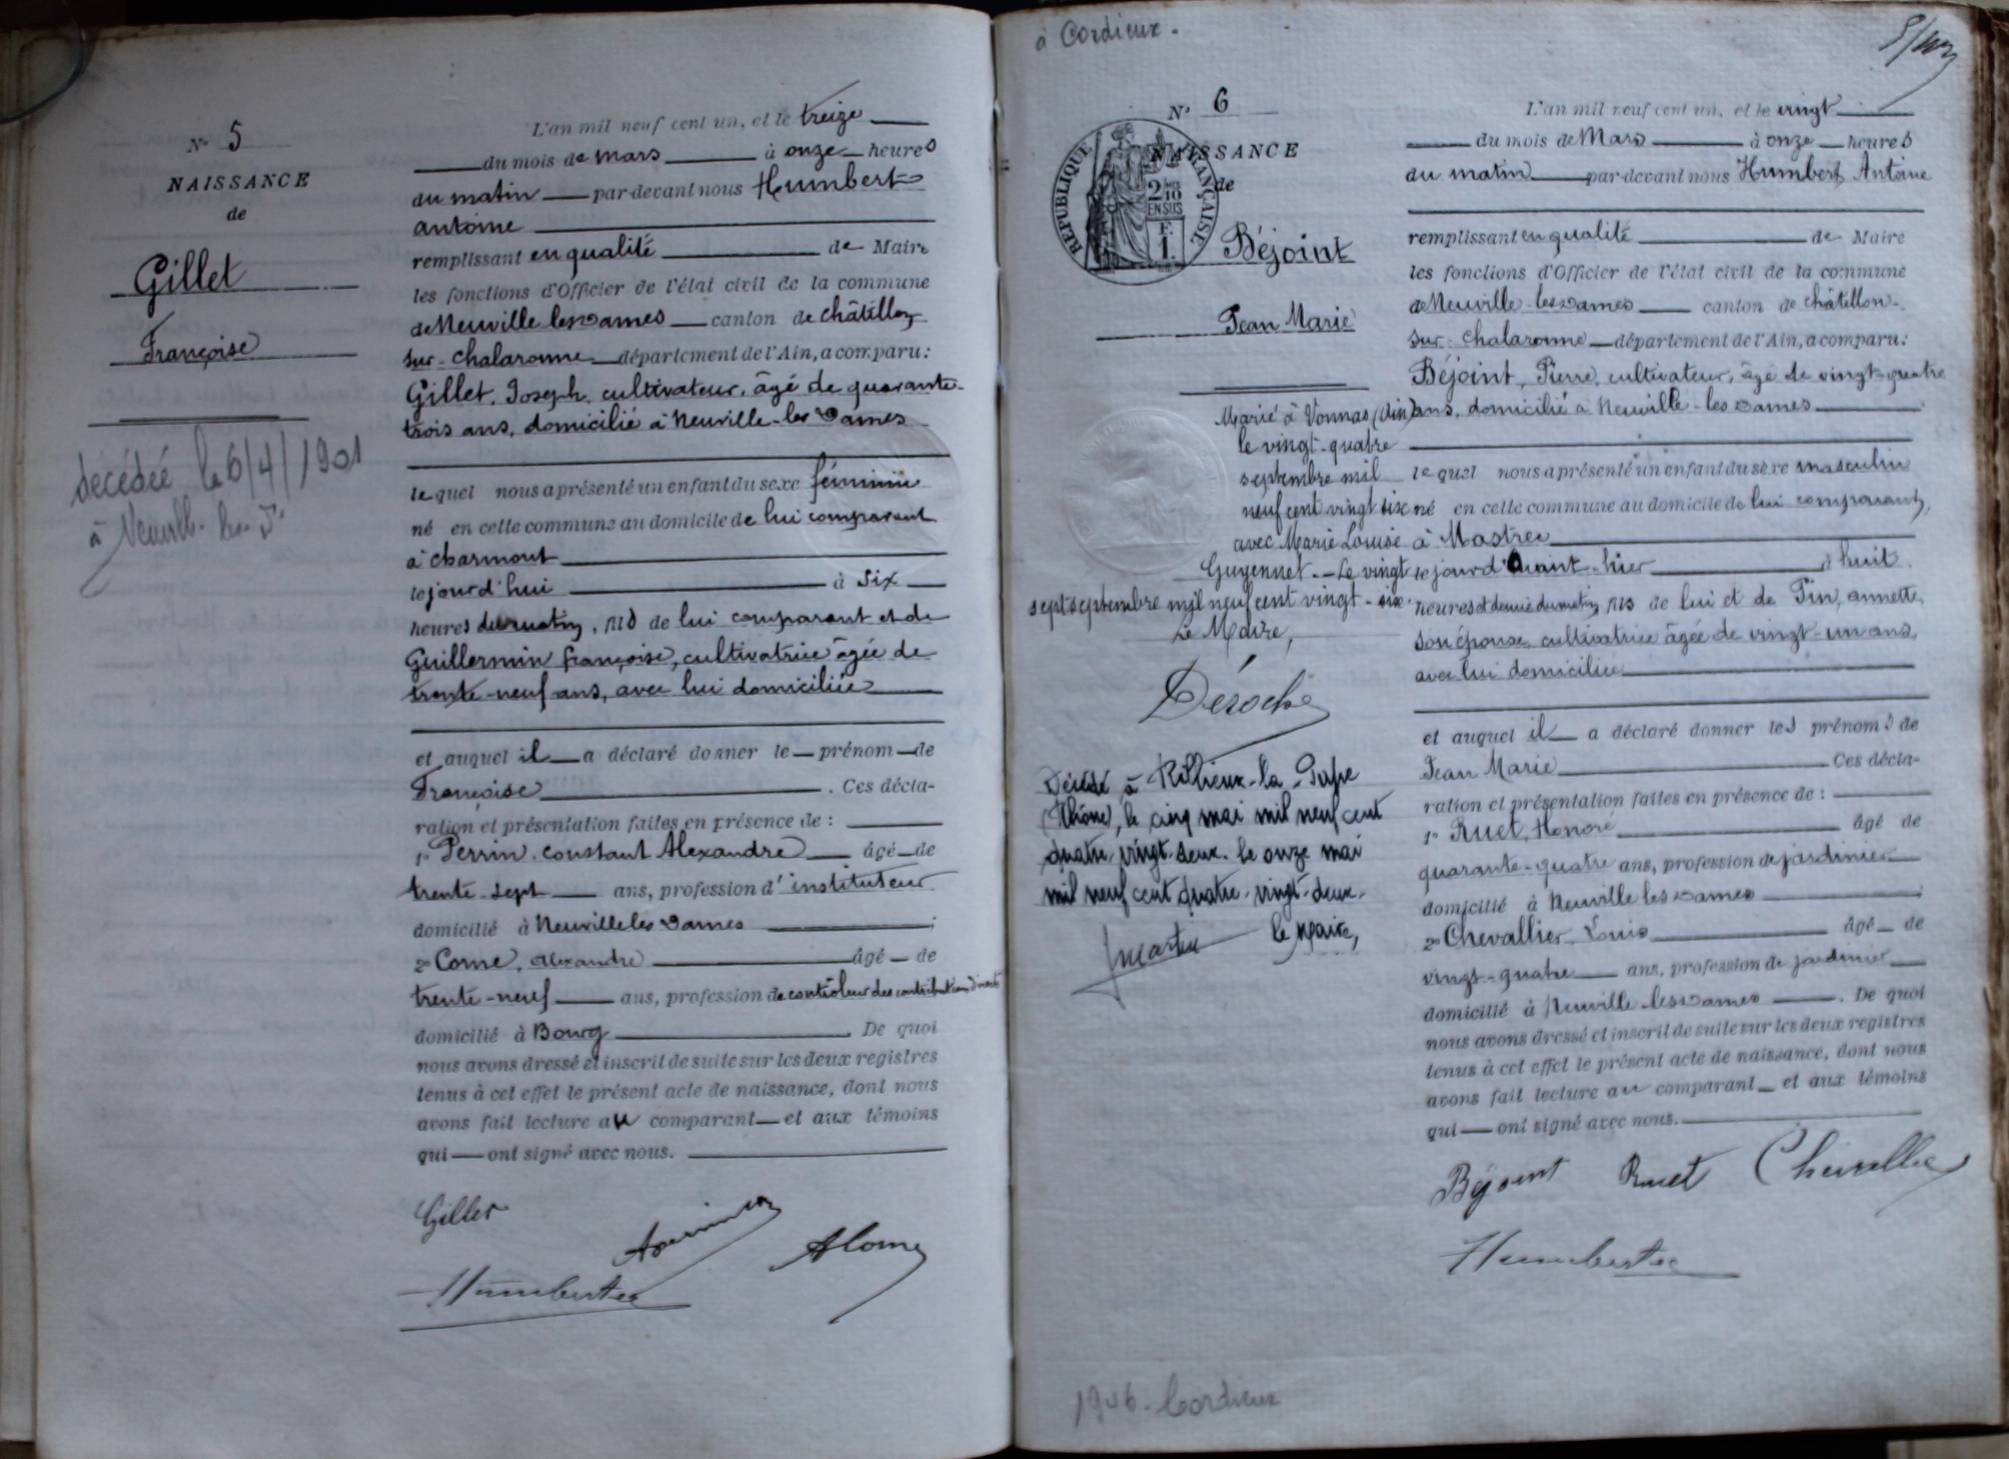 N° 5
NAISSANCE
de
Gillet
Françoise
décédée le 6/4/1901
à Neuville-les-D.
L'an mil neuf cent un, et le treize
du mois de mars à onze heures
du matin par-devant nous Humbert
antoine
remplissant en qualité de Maire
les fonctions d'Officier de l'état civil de la commune
de Neuville les Dames canton de châtillon
sur-chalaronne département de l'Ain, a comparu:
Gillet, Joseph, cultivateur, âgé de quarante-
trois ans, domicilié à Neuville-les Dames
le quel nous a présenté un enfant du sexe féminin
né en cette commune au domicile de lui comparant
à charmont
le jourd'hui à six
heures du matin, fils de lui comparant et de
Guillermin françoise, cultivatrice âgée de
trente-neuf ans, avec lui domiciliée
et auquel il a déclaré donner le prénom de
Françoise. Ces décla-
ration et présentation faites en présence de :
1° Perrin, constant Alexandre âgé de
trente-sept ans, profession d'instituteur
domicilié à Neuville les Dames ;
2° Come, Alexandre âgé de
trente-neuf ans, profession de contrôleur des contributions directes
domicilié à Bourg. De quoi
nous avons dressé et inscrit de suite sur les deux registres
tenus à cet effet le présent acte de naissance, dont nous
avons fait lecture au comparant et aux témoins
qui ont signé avec nous.
Gillet
Humbert
à Cordieux.
N° 6
NAISSANCE
de
RÉPUBLIQUE FRANÇAISE
2/10
EN SUS
F.
1.
Béjoint
Jean Marie
Marié à Vonnas (Ain)
le vingt-quatre
septembre mil
neuf cent vingt six
avec Marie Louise
Guyennet. - Le vingt
sept septembre mil neuf cent vingt-six.
Le Maire,
Déroche
Décédé à Rillieux-la-Pape
(Rhône), le cinq mai mil neuf cent
quatre-vingt-deux. le onze mai
mil neuf cent quatre-vingt-deux.
le Maire,
1946. Cordieux
L'an mil neuf cent un, et le vingt
du mois de Mars à onze heures
du matin par-devant nous Humbert Antoine
remplissant en qualité de Maire
les fonctions d'Officier de l'état civil de la commune
de Neuville-les Dames canton de châtillon-
sur-chalaronne département de l'Ain, a comparu:
Béjoint, Pierre, cultivateur, âgé de vingt-quatre
ans, domicilié à Neuville-les Dames
le quel nous a présenté un enfant du sexe masculin
né en cette commune au domicile de lui comparant,
à
le jourd'avant-hier à huit
heures et demie du matin, fils de lui et de Pin, annette,
son épouse, cultivatrice âgée de vingt-un ans,
avec lui domiciliée
et auquel il a déclaré donner les prénoms de
Jean Marie Ces décla-
ration et présentation faites en présence de :
1° Ruet, Honoré âgé de
quarante-quatre ans, profession de jardinier
domicilié à Neuville les Dames ;
2° Chevallier, Louis âgé de
vingt-quatre ans, profession de jardinier
domicilié à Neuville-les Dames. De quoi
nous avons dressé et inscrit de suite sur les deux registres
tenus à cet effet le présent acte de naissance, dont nous
avons fait lecture au comparant et aux témoins
qui ont signé avec nous.
Béjoint Ruet Chevallier
Humbert